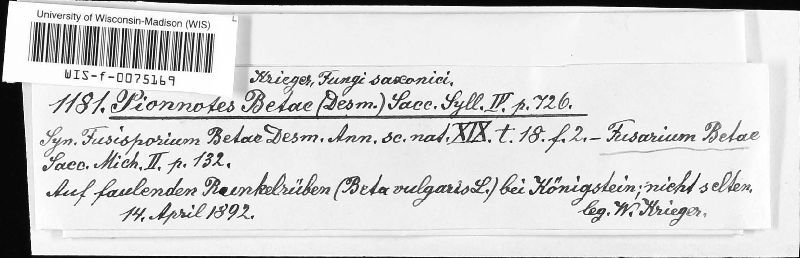 University of Wisconsin-Madison (WIS)
WIS-f-0075169
Krieger, Fungi saxonici.
1181. Pionnotes Betae (Desm.) Sacc. Syll. IV. p. 726.
Syn. Fusisporium Betae Desm. Ann. sc. nat. XIX. t. 18. f. 2. – Fusarium Betae
Sacc. Mich. II. p. 132.
Auf faulenden Runkelrüben (Beta vulgaris L.) bei Königstein; nicht selten.
14. April 1892.
leg. W. Krieger.